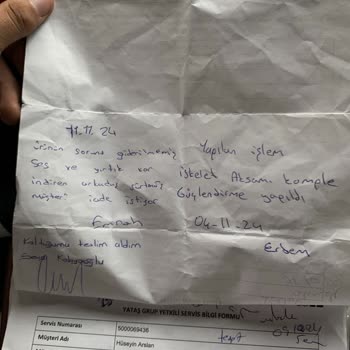 11.11.24
ürünün sorunu giderilmemiş
Ses ve yırtık var
indiren arkadaş
müşteri iade istiyor
Emrah
Koltuğumu teslim aldım
Yapılan işlem
İskelet Aksam komple
Güçlendirme yapıldı
04-11-24
Erdem
YATAŞ GRUP YETKİLİ SERVİS BİLGİ FORMU
Servis Numarası 5000069438
Müşteri Adı Hüseyin Arslan